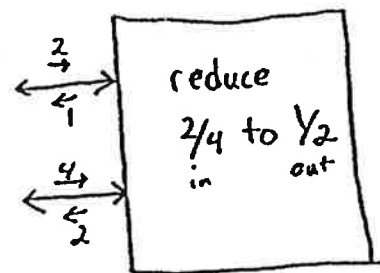 2
1
4
2
reduce
2/4 to 1/2
in out